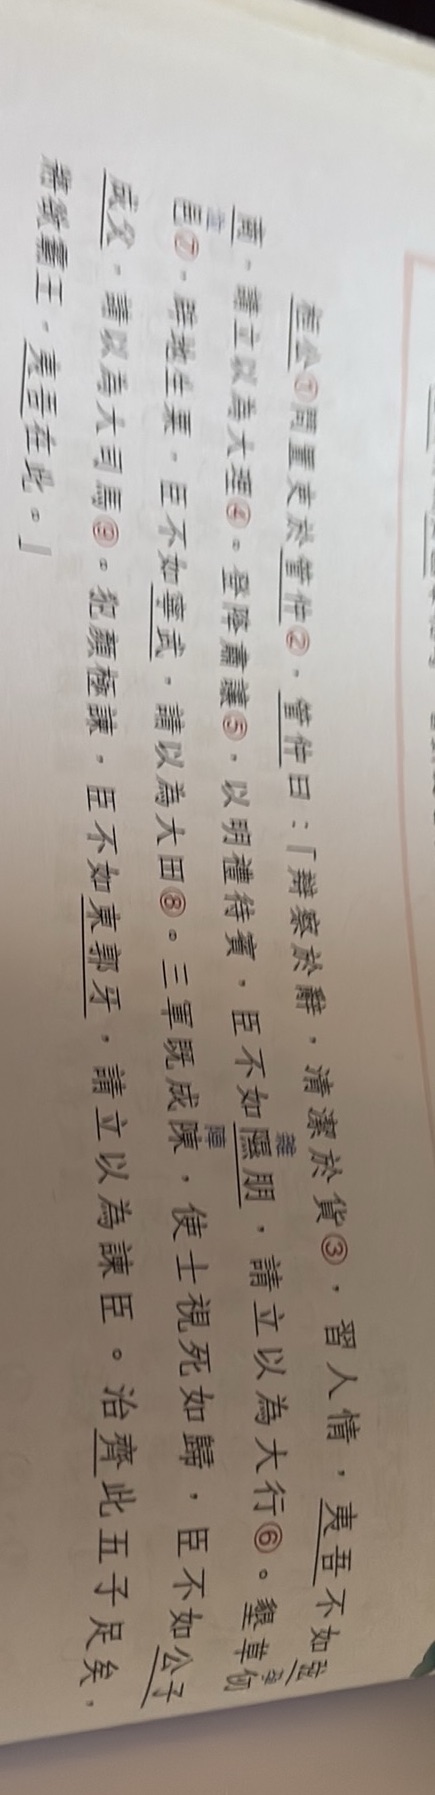 桓公①問置吏於管仲②，管仲曰：「辯察於辭，清潔於貨③，習人情，夷吾不如弦
商，請立以為大理④。登降肅讓⑤，以明禮待賓，臣不如隰朋，請立以為大行⑥。墾草仞
邑⑦，辟地生粟，臣不如寧武，請以為大田⑧。三軍既成陳，使士視死如歸，臣不如公子
陣
成父，請以為大司馬⑨。犯顏極諫，臣不如東郭牙，請立以為諫臣。治齊此五子足矣，
將欲霸王，夷吾在此。」